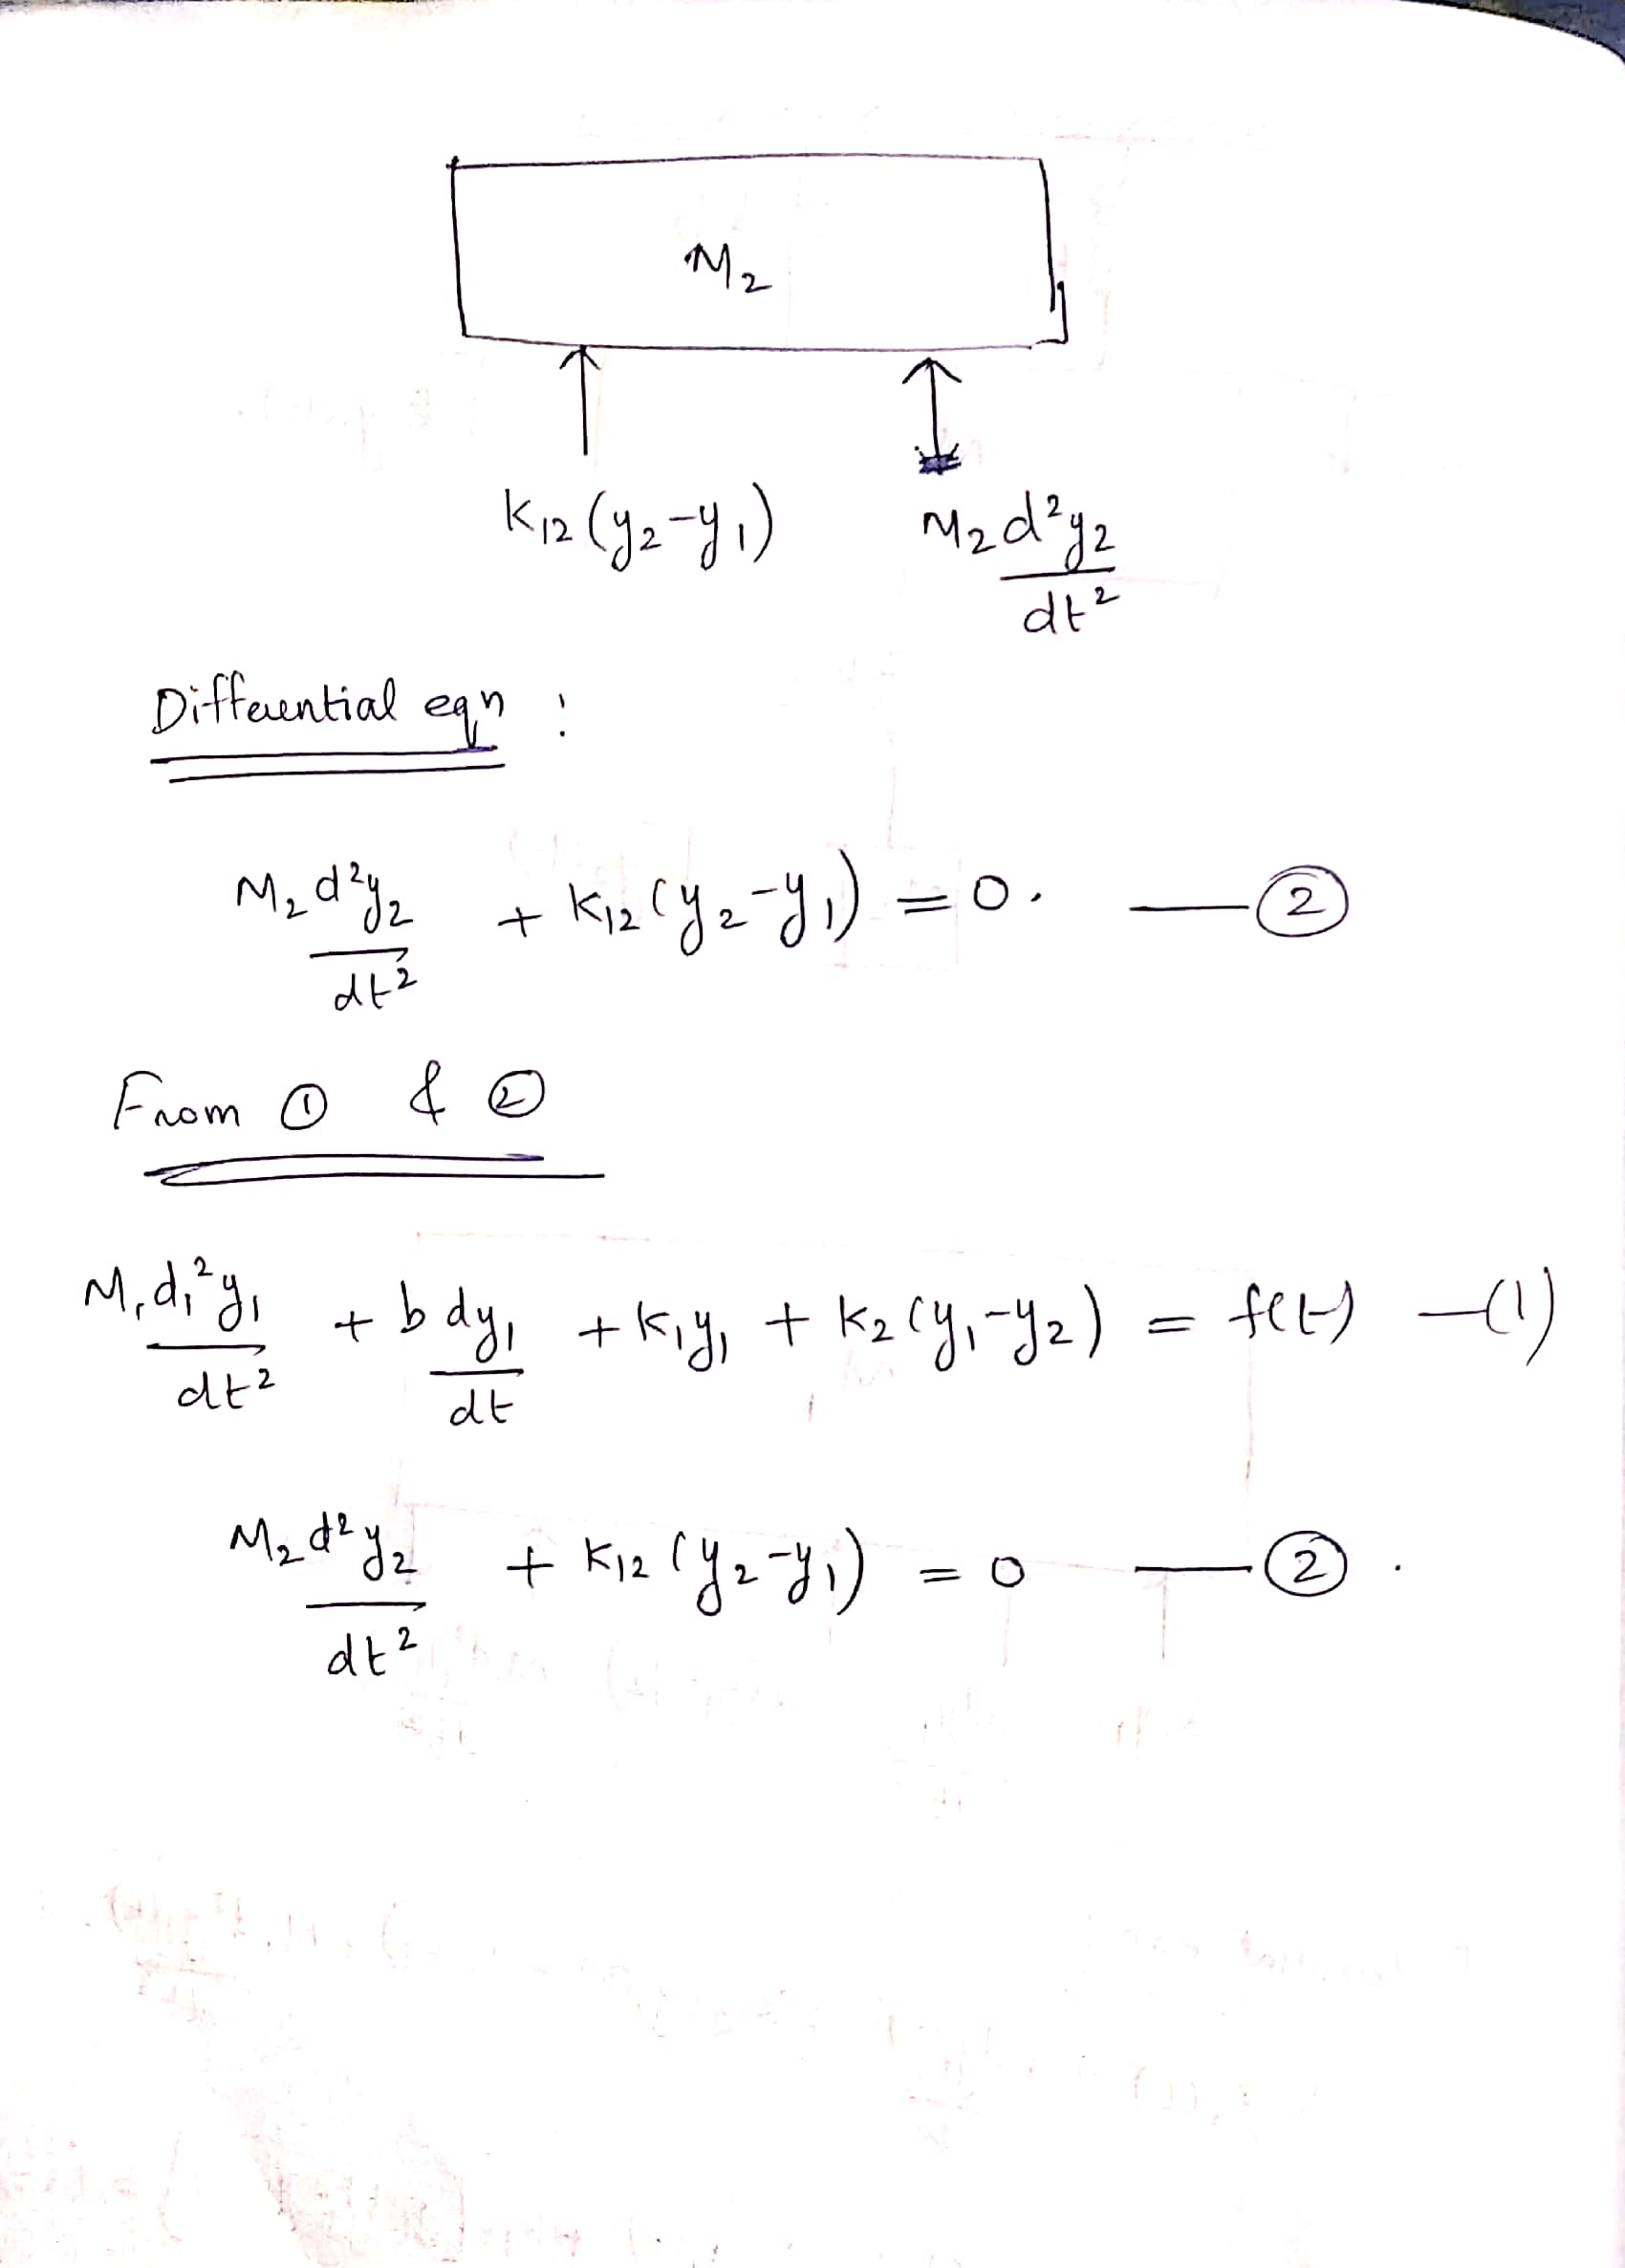 M₂
K₁₂(y₂-y₁) M₂d²y₂/dt²
Differential eqn :
M₂d²y₂/dt² + K₁₂(y₂-y₁) = 0. —②
From ① & ②
M₁d₁²y₁/dt² + b dy₁/dt + K₁y₁ + K₂(y₁-y₂) = f(t) —(1)
M₂d²y₂/dt² + K₁₂(y₂-y₁) = 0 —② .